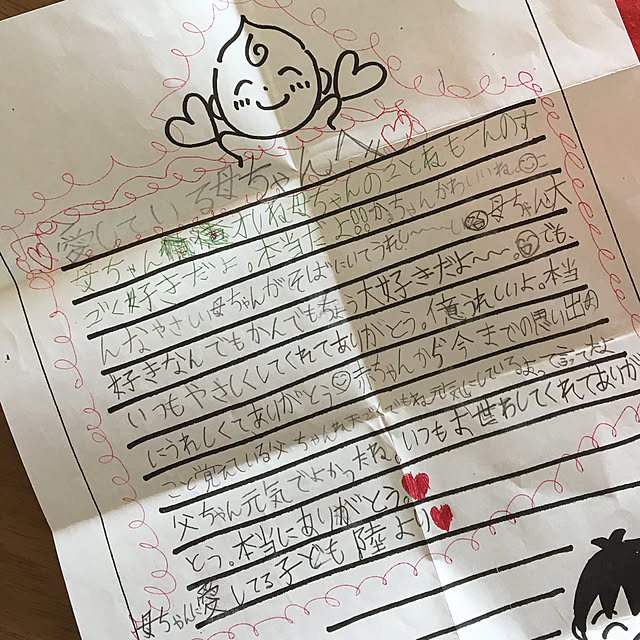 愛している母ちゃんへ
母ちゃん オレね母ちゃんのことねもーんのす
ごく好きだよ。本当だよ!!母ちゃんかわいいね。こ
んなやさしい母ちゃんがそばにいてうれしー〜〜母ちゃん大
好きなんでもかんでもちょう大好きだよ〜〜。でも、
いつもやさしくしてくれてありがとう。億うれしいよ。本当
にうれしくてありがとう 赤ちゃんから今までの思い出
こと覚えている父ちゃん 元気にしているよって言ってね
父ちゃん元気でよかったね。いつもお世わしてくれてありが
とう。本当にありがとう。
母ちゃんに愛してる子ども 陸より